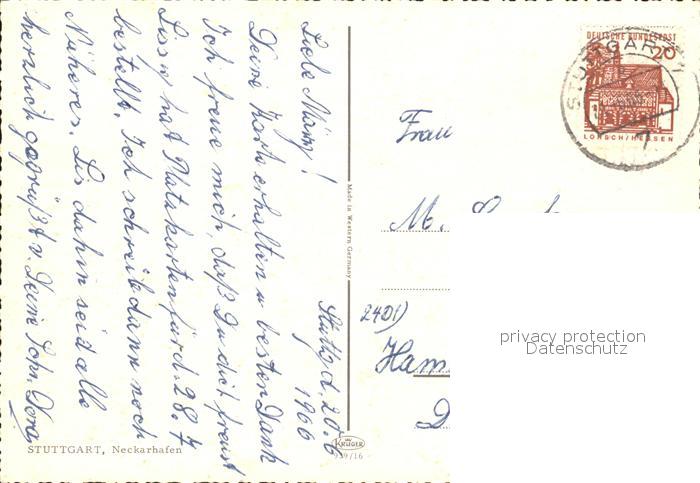 Stuttg. d. 20.6
1966
Liebe Mämy!
Deine Karte erhalten u besten Dank
Ich freue mich, daß Du dich freust
Lissy hat Platzkarten für d. 28.7
bestellt. Ich schreib dann noch
Näheres. Bis dahin seid alle
herzlich gegrüßt v. Deine Schw. Dora
STUTTGART, Neckarhafen
Made in Western Germany
KRÜGER
939/16
DEUTSCHE BUNDESPOST
20
LORSCH/HESSEN
STUTTGART
Frau
M.
2401)
Ham
D
privacy protection
Datenschutz